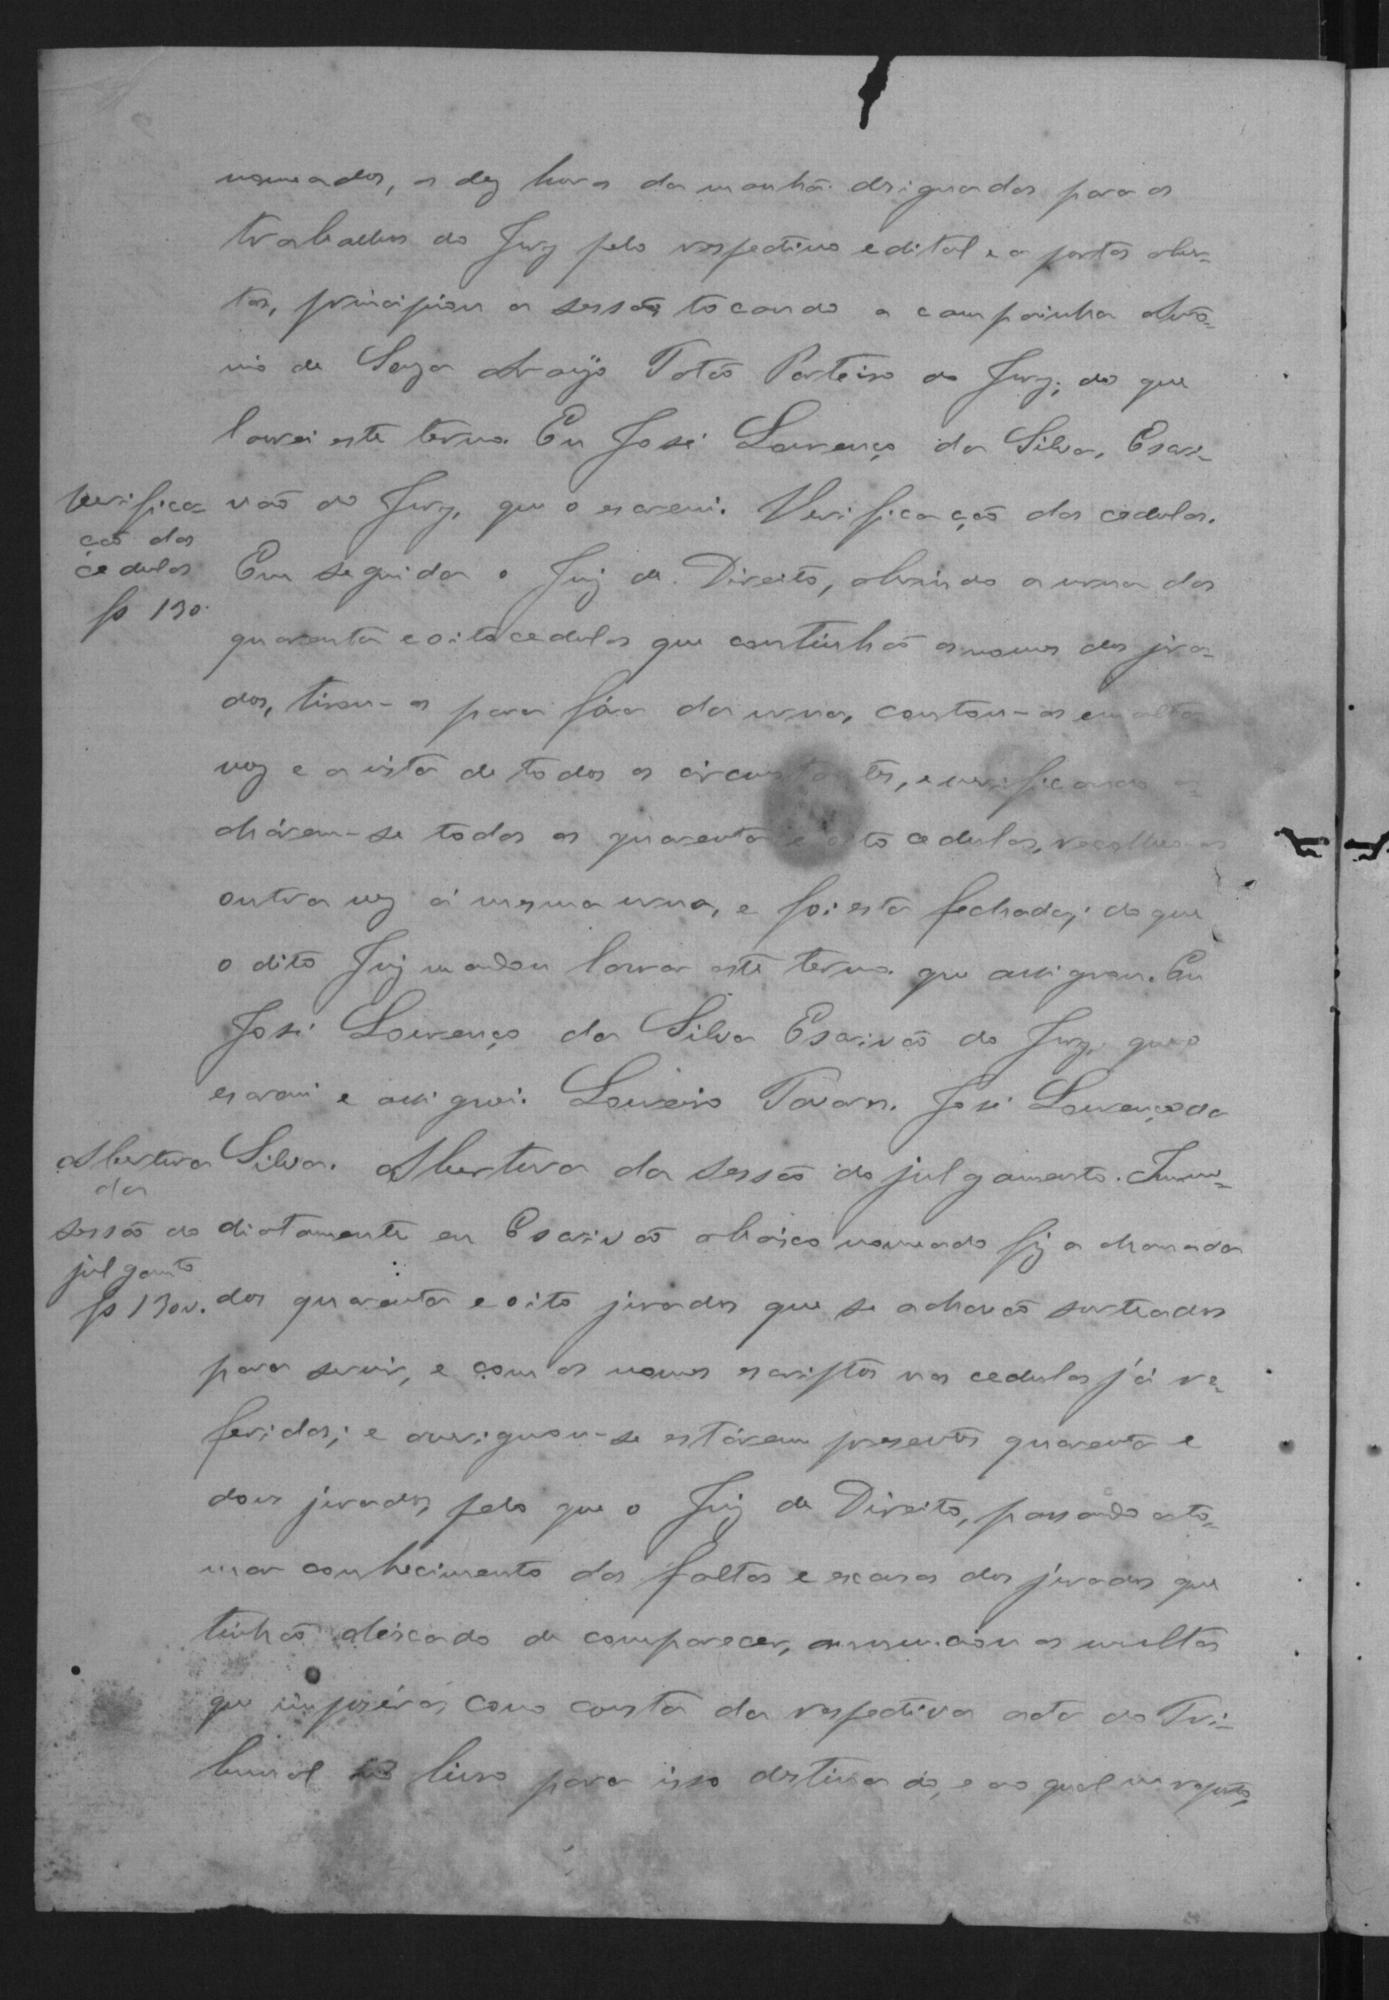 nomeados, as dez horas da manhã designadas para os
trabalhos do Jury pelo respectivo edital e a portas aber-
tas, principiou a sessão tocando a campainha
de Souza Araujo Totão Porteiro do Jury; do que
lavrei este termo. Eu José Lourenço da Silva, Escri-
vão do Jury, que o escrevi. Verificação das cedulas.
Verifica-
ção das
cedulas
fs 130.
Em seguida o Juiz de Direito, abrindo a urna das
quarenta e oito cedulas que continhão os nomes dos jura-
dos, tirou-as para fóra da urna, contou-as em alta
voz e a vista de todos os circunstantes, e verificando a-
chárem-se todas as quarenta e oito cedulas, recolheu-as
outra vez á mesma urna, e foi esta fechada; do que
o dito Juiz mandou lavrar este termo que assignou. Eu
José Lourenço da Silva Escrivão do Jury, que o
escrevi e assignei. Loureiro Tavares. José Lourenço da
Silva. Abertura da sessão do julgamento. Imme-
Abertura
da
sessão do
julgamto
fs 130v.
diatamente eu Escrivão abaixo nomeado fiz a chamada
dos quarenta e oito jurados que se achavão sorteados
para servir, e com os nomes escriptos nas cedulas já re-
feridas; e averiguou-se estárem presentes quarenta e
dois jurados, pelo que o Juiz de Direito, passando a to-
mar conhecimento das faltas e escusas dos jurados que
tinhão deixado de comparecer, annunciou as multas
que impoz como consta da respectiva acta do Tri-
bunal no livro para isso destinado, e ao qual me reporto,